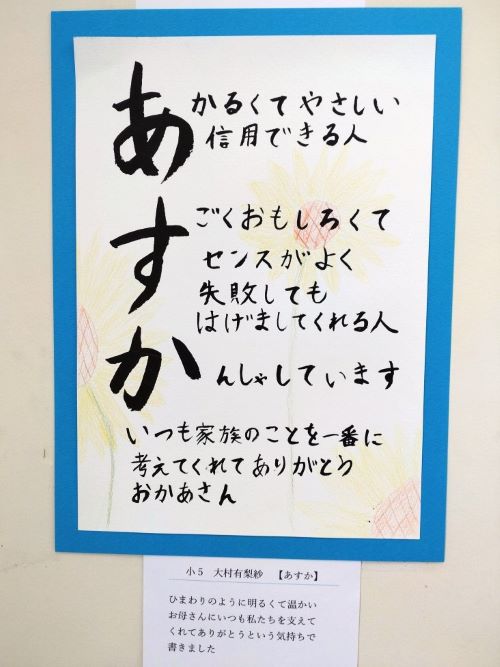 あかるくてやさしい
信用できる人
すごくおもしろくて
センスがよく
失敗しても
はげましてくれる人
かんしゃしています
いつも家族のことを一番に
考えてくれてありがとう
おかあさん
小5 大村有梨紗 【あすか】
ひまわりのように明るくて温かい
お母さんにいつも私たちを支えて
くれてありがとうという気持ちで
書きました